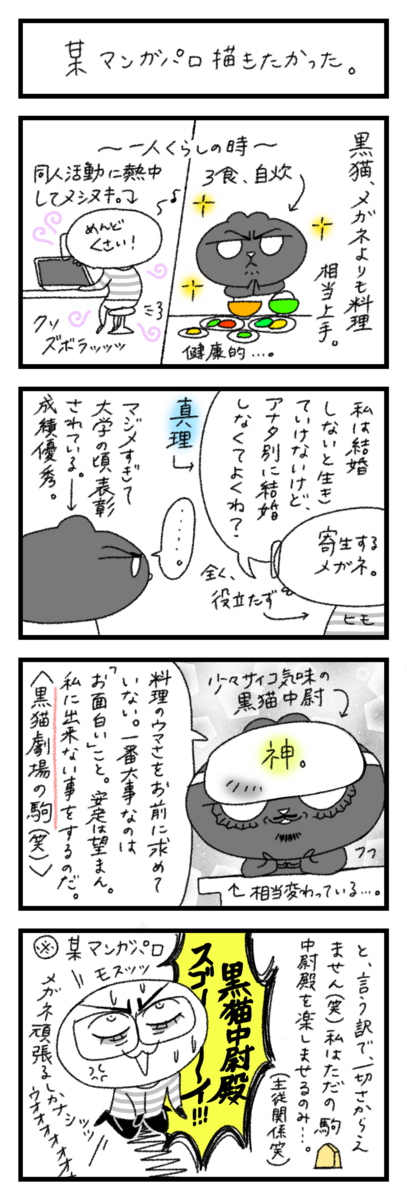 某マンガパロ描きたかった。
黒猫、メガネよりも料理
相当上手。
〜一人ぐらしの時〜
3食、自炊
健康的…。
同人活動に熱中
してメシヌキ。
めんど
くさい！
クソ
ズボラッッッ
私は結婚
しないと生き
ていけないけど、
アナタ別に結婚
しなくてよくね？
寄生する
メガネ。
ヒモ
全く、
役立たず
真理
・・・・。
マジメすぎて
大学の頃表彰
されている。
成績優秀。
少々サイコ気味の
黒猫中尉
神。
フフ
相当変わっている…。
料理のウマさをお前に求めて
いない。一番大事なのは
「お面白い」こと。安定は望まん。
私に出来ない事をするのだ。
〈黒猫劇場の駒(笑)〉
と、言う訳で、一切さからえ
ません(笑)私はただの駒
中尉殿を楽しませるのみ…。
(主従関係笑)
黒猫中尉殿
スゴーーーイ!!!
※某マンガパロ
モスッッ
メガネ頑張るしかナシッッ
ウオオオオオオ